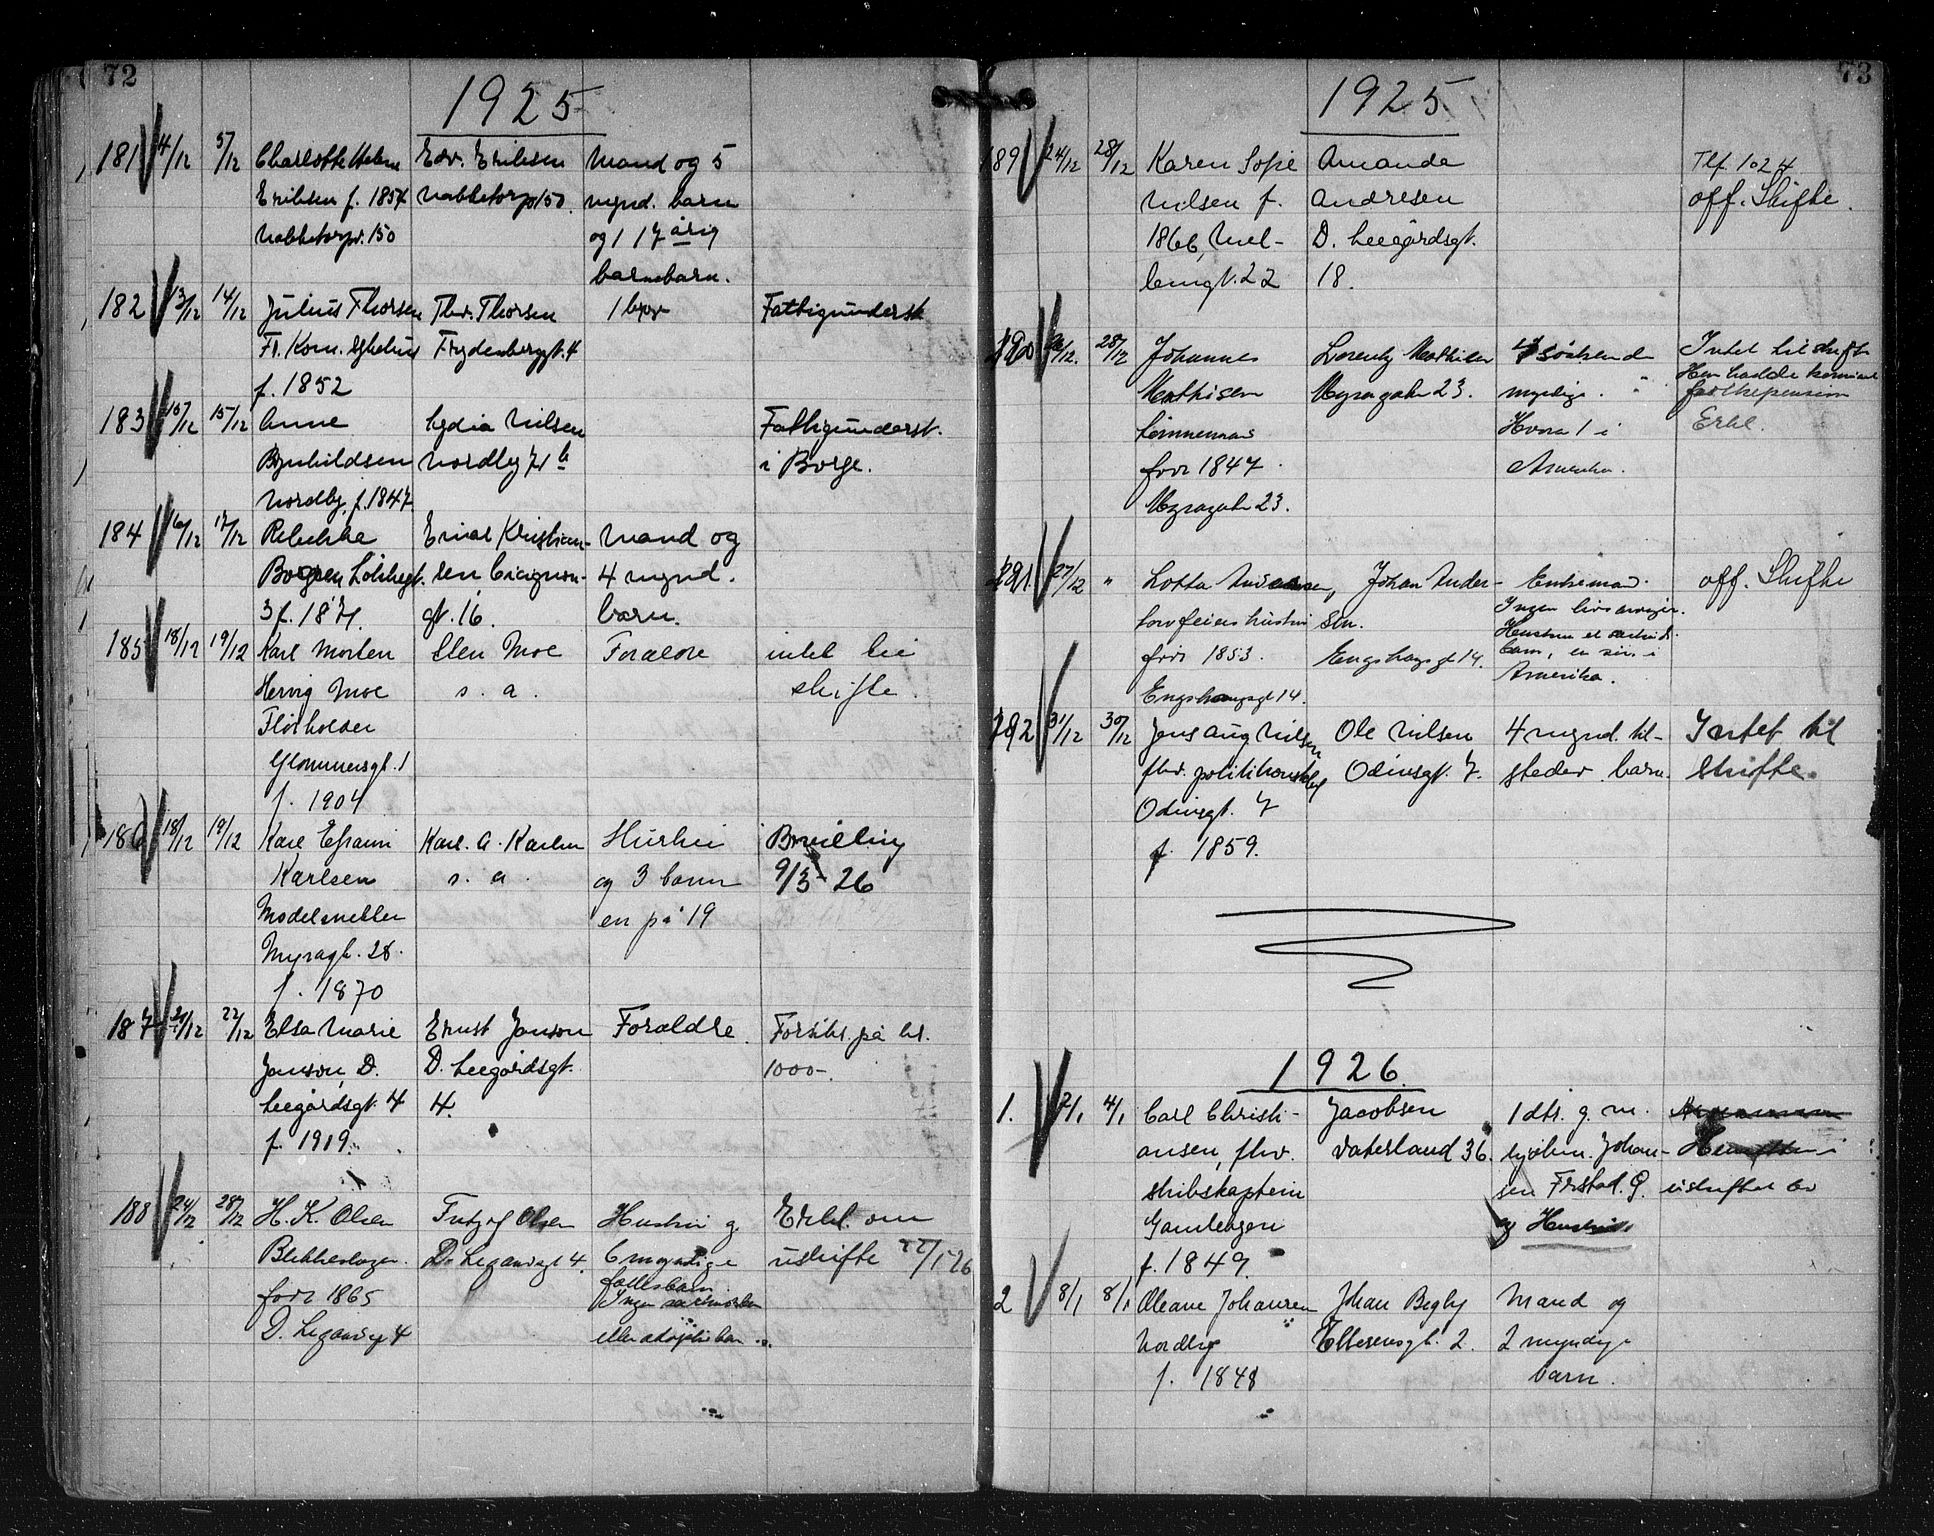 72
1925
181 4/12 5/12 Charlotte Helene Edv. Eriksen Mand og 5
Eriksen f. 1854 Nabbetorp 150. mynd. barn
Nabbetorpv. 150 og 1 17 årig
barnebarn.
182 13/12 14/12 Julius Thorsen Thv. Thorsen Fattigunderst
Fr. Kom. Frydenberggt. 4
f. 1852
183 15/12 15/12 Anne Lydia Nilsen Fattigunderst.
Brynhildsen Nordby 71 b i Borge.
Nordby, f. 1847
184 16/12 17/12 Rebekka Einar Kristian- Mand og
Borgen sen 4 mynd.
3 f. 1871. gt. 16. barn.
185 18/12 19/12 Karl Morten Elen Moe Forældre intet til
Hervig Moe s. a. skifte.
Fløtholder
Glommensgt. 1
f. 1904
186 18/12 19/12 Karl Efraim Karl. A. Karlsen Hustru Bevilling
Karlsen s. a. og 3 barn 9/3 - 26
Modelsnekker en på 19
Myragt. 28.
f. 1870
187 21/12 22/12 Elsa Marie Ernst Janson Forældre. Forsikr. på kr.
Janson, D. D. Leegårdsgt. 1000-.
Leegårdsgt. 4 4.
f. 1919.
188 24/12 28/12 H. K. Olsen Fritjof Olsen Hustru g Erkl. om
Blikkenslager. D. Legaardsgt 4. 6 myndige uskifte 22/1-26
født 1865 fællesbarn
D. Legaardsg 4 Ingen
eller adoptivbarn
73
1925
189 24/12 28/12 Karen Sofie Amanda Tlf. 1024
Nilsen f. Andresen off. Skifte.
1866, Mel- D. Leegårdsgt.
lemgt. 22 18.
190 28/12 Johannes Lorentz Mathisen søskende Intet til skifte
Mathisen Myragaten 23. myndige. Han hadde kommunal
Tømmermand Hvora 1 i fattigpension
født 1847. Amerika. Erkl.
Myragaten 23.
191 27/12 " Lotta Andersen, Johan Ander- Enkemand. off. Skifte
hustru sen. Ingen livsarvinger.
født 1853. Engshaugsgt 14. Hustru et særkuls-
Engshaugsgt 14. barn, en søn i
Amerika.
192 31/12 30/12 Jens Aug Nilsen Ole Nilsen 4 mynd. til- Intet til
fhv. politikonstabel Odinsgt. 7. steder barn. Skifte.
Odinsgt. 7
f. 1859.
1926.
1. 2/1 4/1 Carl Christi- Jacobsen 1 dtr. g. m.
ansen, fhv. Vaterland 36. sjøm. Johan-
skibskaptein sen Frstad. Ø. uskiftet bo
Gamlebyen og Hustru
f. 1849.
2 8/1 8/1 Oleane Johansen Johan Begby Mand og
Nordby Ellesensgt. 2. 2 myndige
f. 1848 barn.